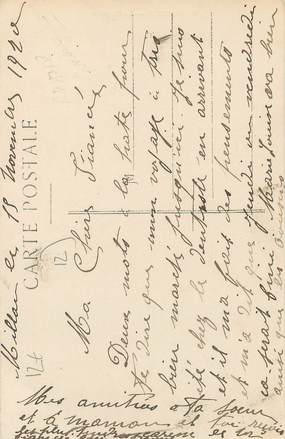 Millau le 18 Novembre 1920
CARTE POSTALE
Ma Chère Fiancée
Deux mots à la hâte pour
te dire que mon voyage a très
bien marché jusqu'ici je suis
été chez le dentiste en arrivant
et il m'a fait des pensements
et m'a dit que jeudi ou vendredi
ça serait fini Marie Louise va bien
ainsi que les
12
124
Mes amitiés a ta sœur
et à maman et toi reçois
les plus